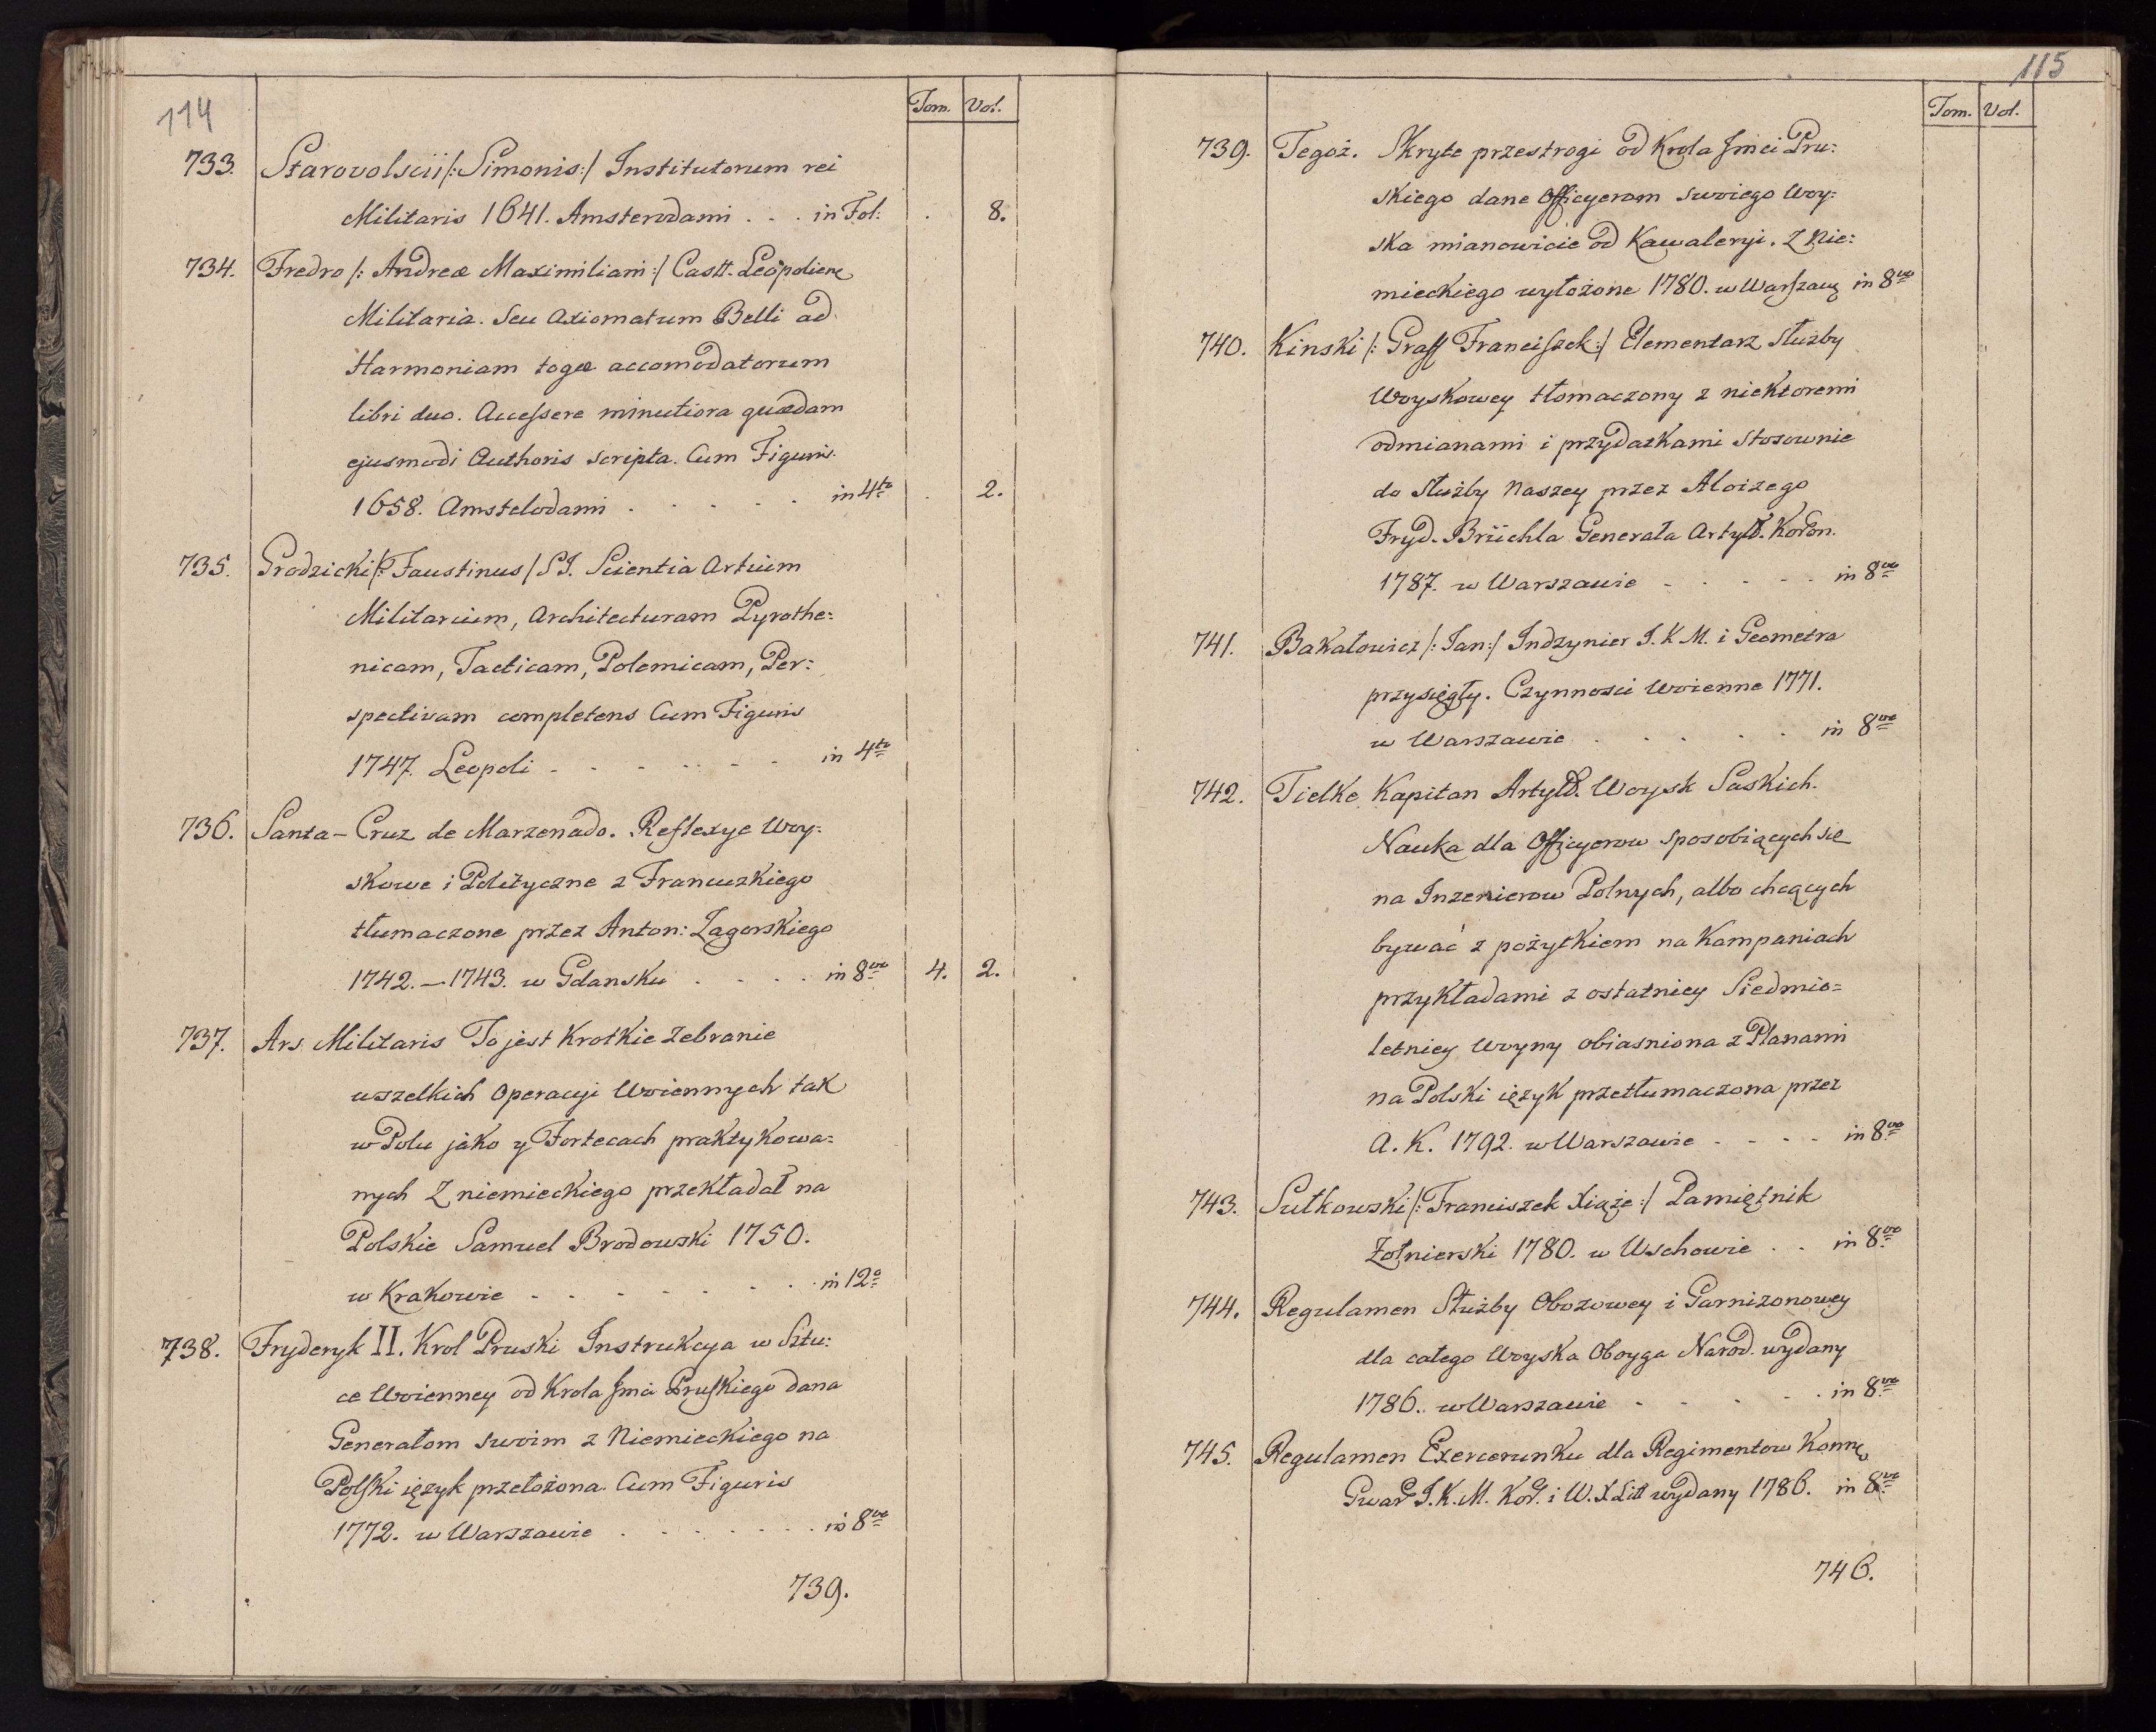 114
Tom. Vol.
733. Starovolscii /: Simonis :/ Institutorum rei
Militaris 1641. Amsterodami . . . in Fol: . 8.
734. Fredro /: Andreæ Maximiliani :/ Castt. Leopolien
Militaria. Seu Axiomatum Belli ad
Harmoniam togæ accomodatorum
libri duo. Accessere minutiora quædam
ejusmodi Authoris scripta. Cum Figuris.
1658. Amstelodami . . . . . in 4to . 2.
735. Grodzicki /: Faustinus / S J. Scientia Artium
Militarium, Architecturam Pyrothe:
nicam, Tacticam, Polemicam, Per:
spectivam completens Cum Figuris
1747. Leopoli . . . . . . . in 4to
736. Santa-Cruz de Marzenado. Reflexye Woy:
skowe i Polityczne z Francuzkiego
tłumaczone przez Anton: Zagorskiego
1742.–1743. w Gdansku . . . . in 8vo 4. 2.
737. Ars Militaris To jest Krotkie Zebranie
wszelkich Operacyi Woiennych tak
w Polu jako y Fortecach praktykowa:
nych Z niemieckiego przekładał na
Polskie Samuel Brodowski 1750.
w Krakowie . . . . . . . in 12o
738. Fryderyk II. Krol Pruski Instrukcya w Sztu:
ce Woienney od Krola Jmci Pruskiego dana
Generałom swoim z Niemieckiego na
Polski ięzyk przełożona. Cum Figuris
1772. w Warszawie . . . . . . . in 8vo
739.
115
Tom. Vol.
739. Tegoż. Skryte przestrogi od Krola Jmci Pru:
skiego dane Officyerom swoiego Woy:
ska mianowicie od Kawaleryi. Z Nie:
mieckiego wyłożone 1780. w Warszawę in 8vo
740. Kinski /: Graff Franciszek :/ Elementarz Służby
Woyskowey tłomaczony z niektoremi
odmianami i przydatkami stosownie
do Służby Naszey przez Aloizego
Fryd. Brüchla Generała Artyll. Koron.
1787. w Warszawie . . . . . in 8vo
741. Bakałowicz /: Jan :/ Indzynier J. K. M. i Geometra
przysięgły. Czynnosci Woienne 1771.
w Warszawie . . . . . in 8vo
742. Tielke Kapitan Artyll. Woysk Saskich.
Nauka dla Officyerow sposobiących się
na Inzenierow Polnych, albo chcących
bywać z pożytkiem na Kampaniach
przykładami z ostatniey Siedmio=
letniey Woyny obiasniona z Planami
na Polski ięzyk przetłumaczona przez
A. K. 1792. w Warszawie . . . . in 8vo
743. Sułkowski /: Franciszek Xiąże :/ Pamiętnik
Żołnierski 1780. w Wschowie . . in 8vo
744. Regulamen Służby Obozowey i Garnizonowey
dla całego Woyska Oboyga Narod. wydany
1786. w Warszawie . . . . in 8vo
745. Regulamen Exercerunku dla Regimentow Konnę
Gward J. K. M. Kor. i W. X Litt wydany 1786. in 8vo
746.